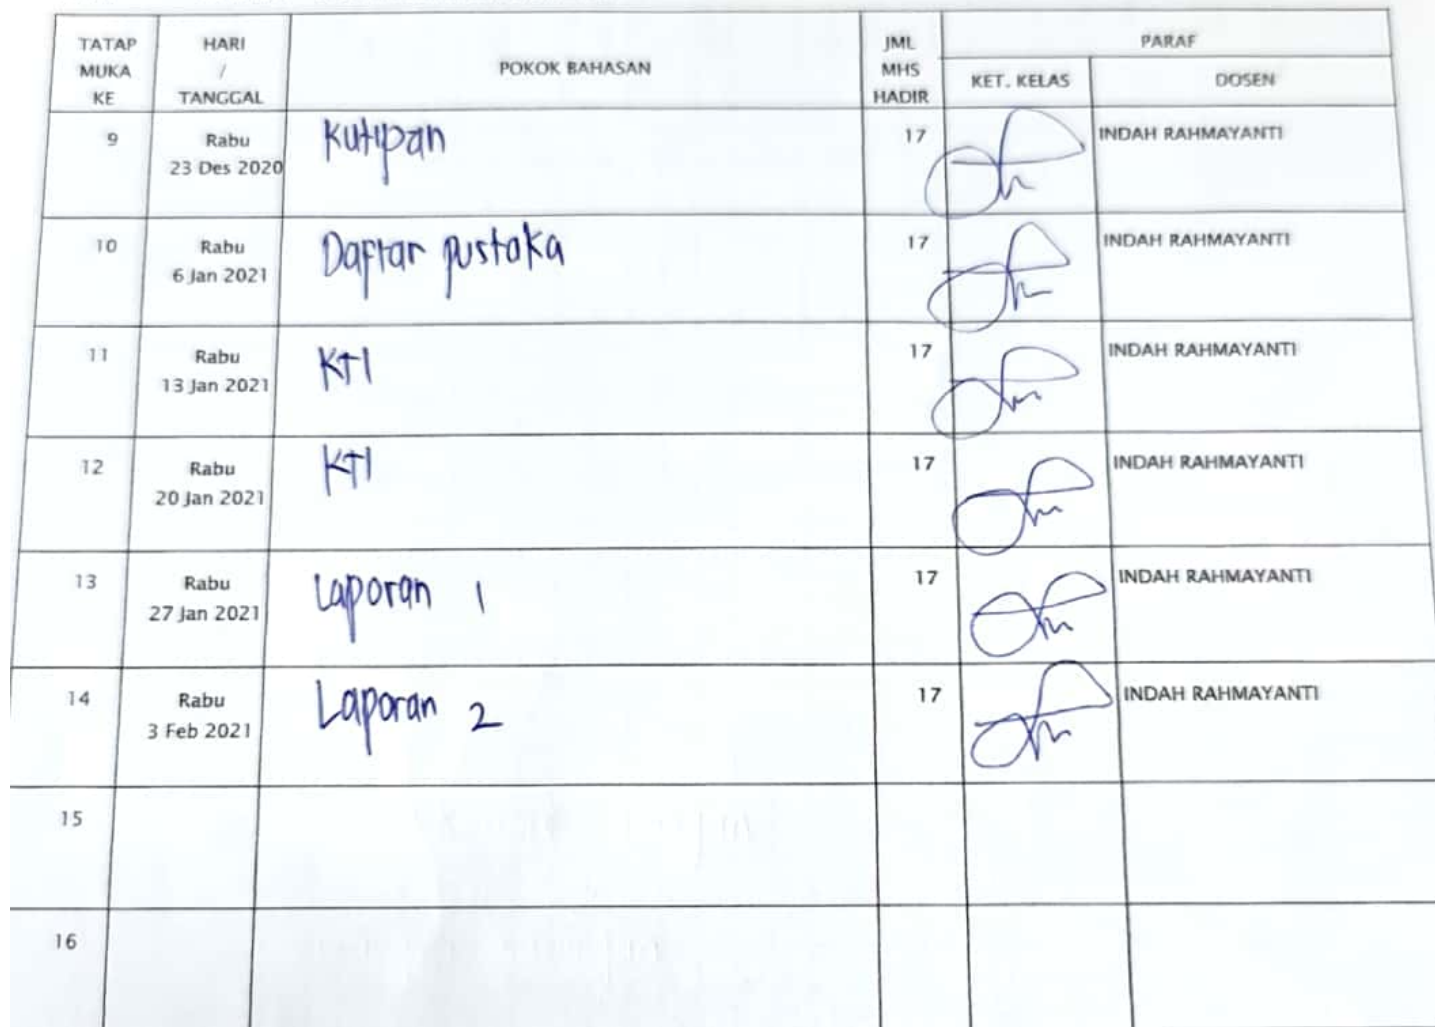 TATAP MUKA KE
HARI / TANGGAL
POKOK BAHASAN
JML MHS HADIR
PARAF
KET. KELAS
DOSEN
9
Rabu
23 Des 2020
Kutipan
17
INDAH RAHMAYANTI
10
Rabu
6 Jan 2021
Daftar pustaka
17
INDAH RAHMAYANTI
11
Rabu
13 Jan 2021
KTI
17
INDAH RAHMAYANTI
12
Rabu
20 Jan 2021
KTI
17
INDAH RAHMAYANTI
13
Rabu
27 Jan 2021
Laporan 1
17
INDAH RAHMAYANTI
14
Rabu
3 Feb 2021
Laporan 2
17
INDAH RAHMAYANTI
15
16